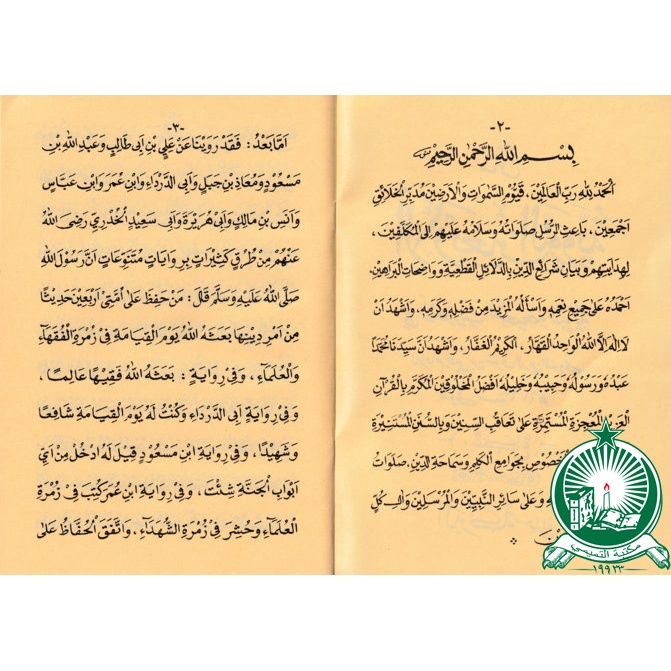 -٢-
بِسْمِ اللهِ الرَّحْمٰنِ الرَّحِيْمِ
اَلْحَمْدُ لِلّٰهِ رَبِّ الْعَالَمِيْنَ، قَيُّوْمِ السَّمٰوَاتِ وَالْاَرَضِيْنَ مُدَبِّرِ الْخَلَائِقِ
اَجْمَعِيْنَ، بَاعِثِ الرُّسُلِ صَلَوَاتُهُ وَسَلَامُهُ عَلَيْهِمْ اِلَى الْمُكَلَّفِيْنَ،
لِهِدَايَتِهِمْ وَبَيَانِ شَرَائِعِ الدِّيْنِ بِالدَّلَائِلِ الْقَطْعِيَّةِ وَوَاضِحَاتِ الْبَرَاهِيْنِ
اَحْمَدُهُ عَلٰى جَمِيْعِ نِعَمِهِ وَاَسْأَلُهُ الْمَزِيْدَ مِنْ فَضْلِهِ وَكَرَمِهِ، وَاَشْهَدُ اَنْ
لَا اِلٰهَ اِلَّا اللهُ الْوَاحِدُ الْقَهَّارُ، الْكَرِيْمُ الْغَفَّارُ، وَاَشْهَدُ اَنَّ سَيِّدَنَا مُحَمَّدًا
عَبْدُهُ وَرَسُوْلُهُ وَحَبِيْبُهُ وَخَلِيْلُهُ اَفْضَلُ الْمَخْلُوْقِيْنَ الْمُكَرَّمُ بِالْقُرْاٰنِ
الْعَزِيْزِ الْمُعْجِزَةِ الْمُسْتَمِرَّةِ عَلٰى تَعَاقُبِ السِّنِيْنَ وَبِالسُّنَنِ الْمُسْتَنِيْرَةِ
الْمَخْصُوْصُ بِجَوَامِعِ الْكَلِمِ وَسَمَاحَةِ الدِّيْنِ، صَلَوَاتُ
وَعَلٰى سَائِرِ النَّبِيِّيْنَ وَالْمُرْسَلِيْنَ وَاٰلِ كُلٍّ
-٣-
اَمَّا بَعْدُ : فَقَدْ رَوَيْنَا عَنْ عَلِيِّ بْنِ اَبِى طَالِبٍ وَعَبْدِ اللهِ بْنِ
مَسْعُوْدٍ وَمُعَاذِ بْنِ جَبَلٍ وَاَبِى الدَّرْدَاءِ وَابْنِ عُمَرَ وَابْنِ عَبَّاسٍ
وَاَنَسِ بْنِ مَالِكٍ وَاَبِى هُرَيْرَةَ وَاَبِى سَعِيْدٍ الْخُدْرِيِّ رَضِىَ اللهُ
عَنْهُمْ مِنْ طُرُقٍ كَثِيْرَاتٍ بِرِوَايَاتٍ مُتَنَوِّعَاتٍ اَنَّ رَسُوْلَ اللهِ
صَلَّى اللهُ عَلَيْهِ وَسَلَّمَ قَالَ: مَنْ حَفِظَ عَلٰى اُمَّتِىْ اَرْبَعِيْنَ حَدِيْثًا
مِنْ اَمْرِ دِيْنِهَا بَعَثَهُ اللهُ يَوْمَ الْقِيَامَةِ فِىْ زُمْرَةِ الْفُقَهَاءِ
وَالْعُلَمَاءِ، وَفِىْ رِوَايَةٍ : بَعَثَهُ اللهُ فَقِيْهًا عَالِمًا،
وَفِىْ رِوَايَةِ اَبِى الدَّرْدَاءِ وَكُنْتُ لَهُ يَوْمَ الْقِيَامَةِ شَافِعًا
وَشَهِيْدًا، وَفِىْ رِوَايَةِ ابْنِ مَسْعُوْدٍ قِيْلَ لَهُ ادْخُلْ مِنْ اَيِّ
اَبْوَابِ الْجَنَّةِ شِئْتَ، وَفِىْ رِوَايَةِ ابْنِ عُمَرَ كُتِبَ فِىْ زُمْرَةِ
الْعُلَمَاءِ وَحُشِرَ فِىْ زُمْرَةِ الشُّهَدَاءِ، وَاتَّفَقَ الْحُفَّاظُ عَلٰى
مكتبة التميمي
١٩٩٣٣